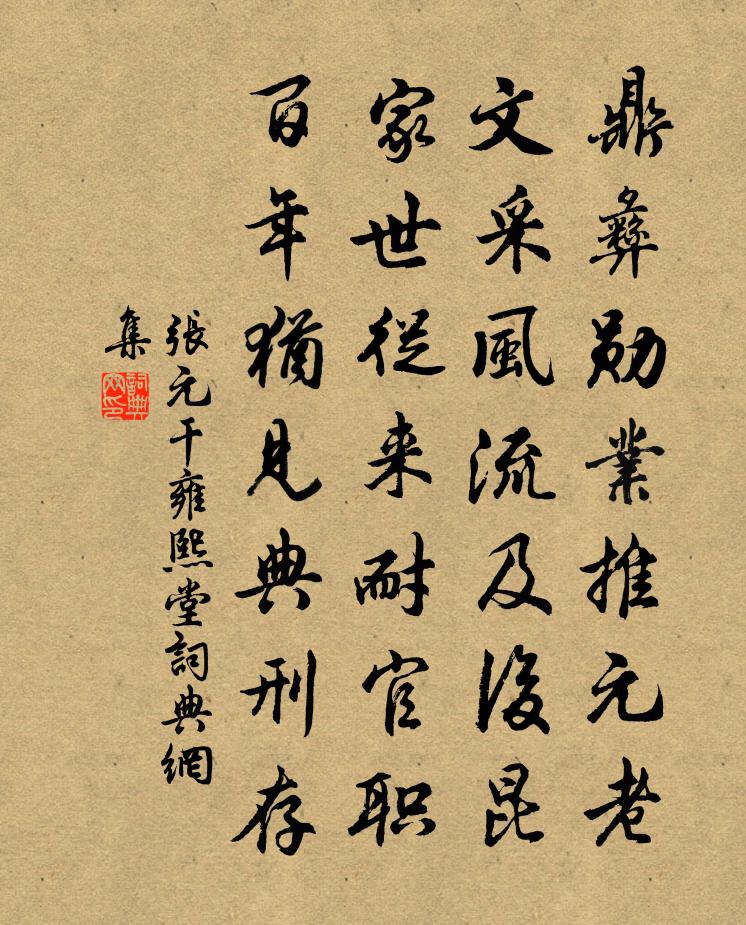 鼎彝勋業推元老
文采風流及後昆
家世從来耐官职
百年猶見典刑存
張元干雍熙堂詞典網
集
詞典網印